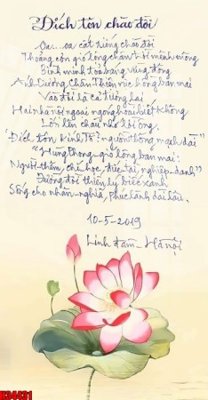 Đích tôn chào đời
Oa... oa cất tiếng chào đời
Thoảng cơn gió lộng chân trời mênh mông
Bình minh toả bạng vừng đông
Ánh Dương Chân Thiện rực hồng ban mai
Vào đời là cả tương lai
Hai bên nội ngoại ngóng hoài biết không
Lời lên cháu nhé với ông.
Đích tôn Kinh Tổ: nguồn thông mạch dài"
"Hừng Đông - gió lộng ban mai:
Người thầm, chí học, đức tài, nghiệp - danh"
Đường đời thiên lý biếc xanh
Sống cho nhân - nghĩa, phúc lành dài lâu.
10-5-2019
Linh Đàm - Hà Nội